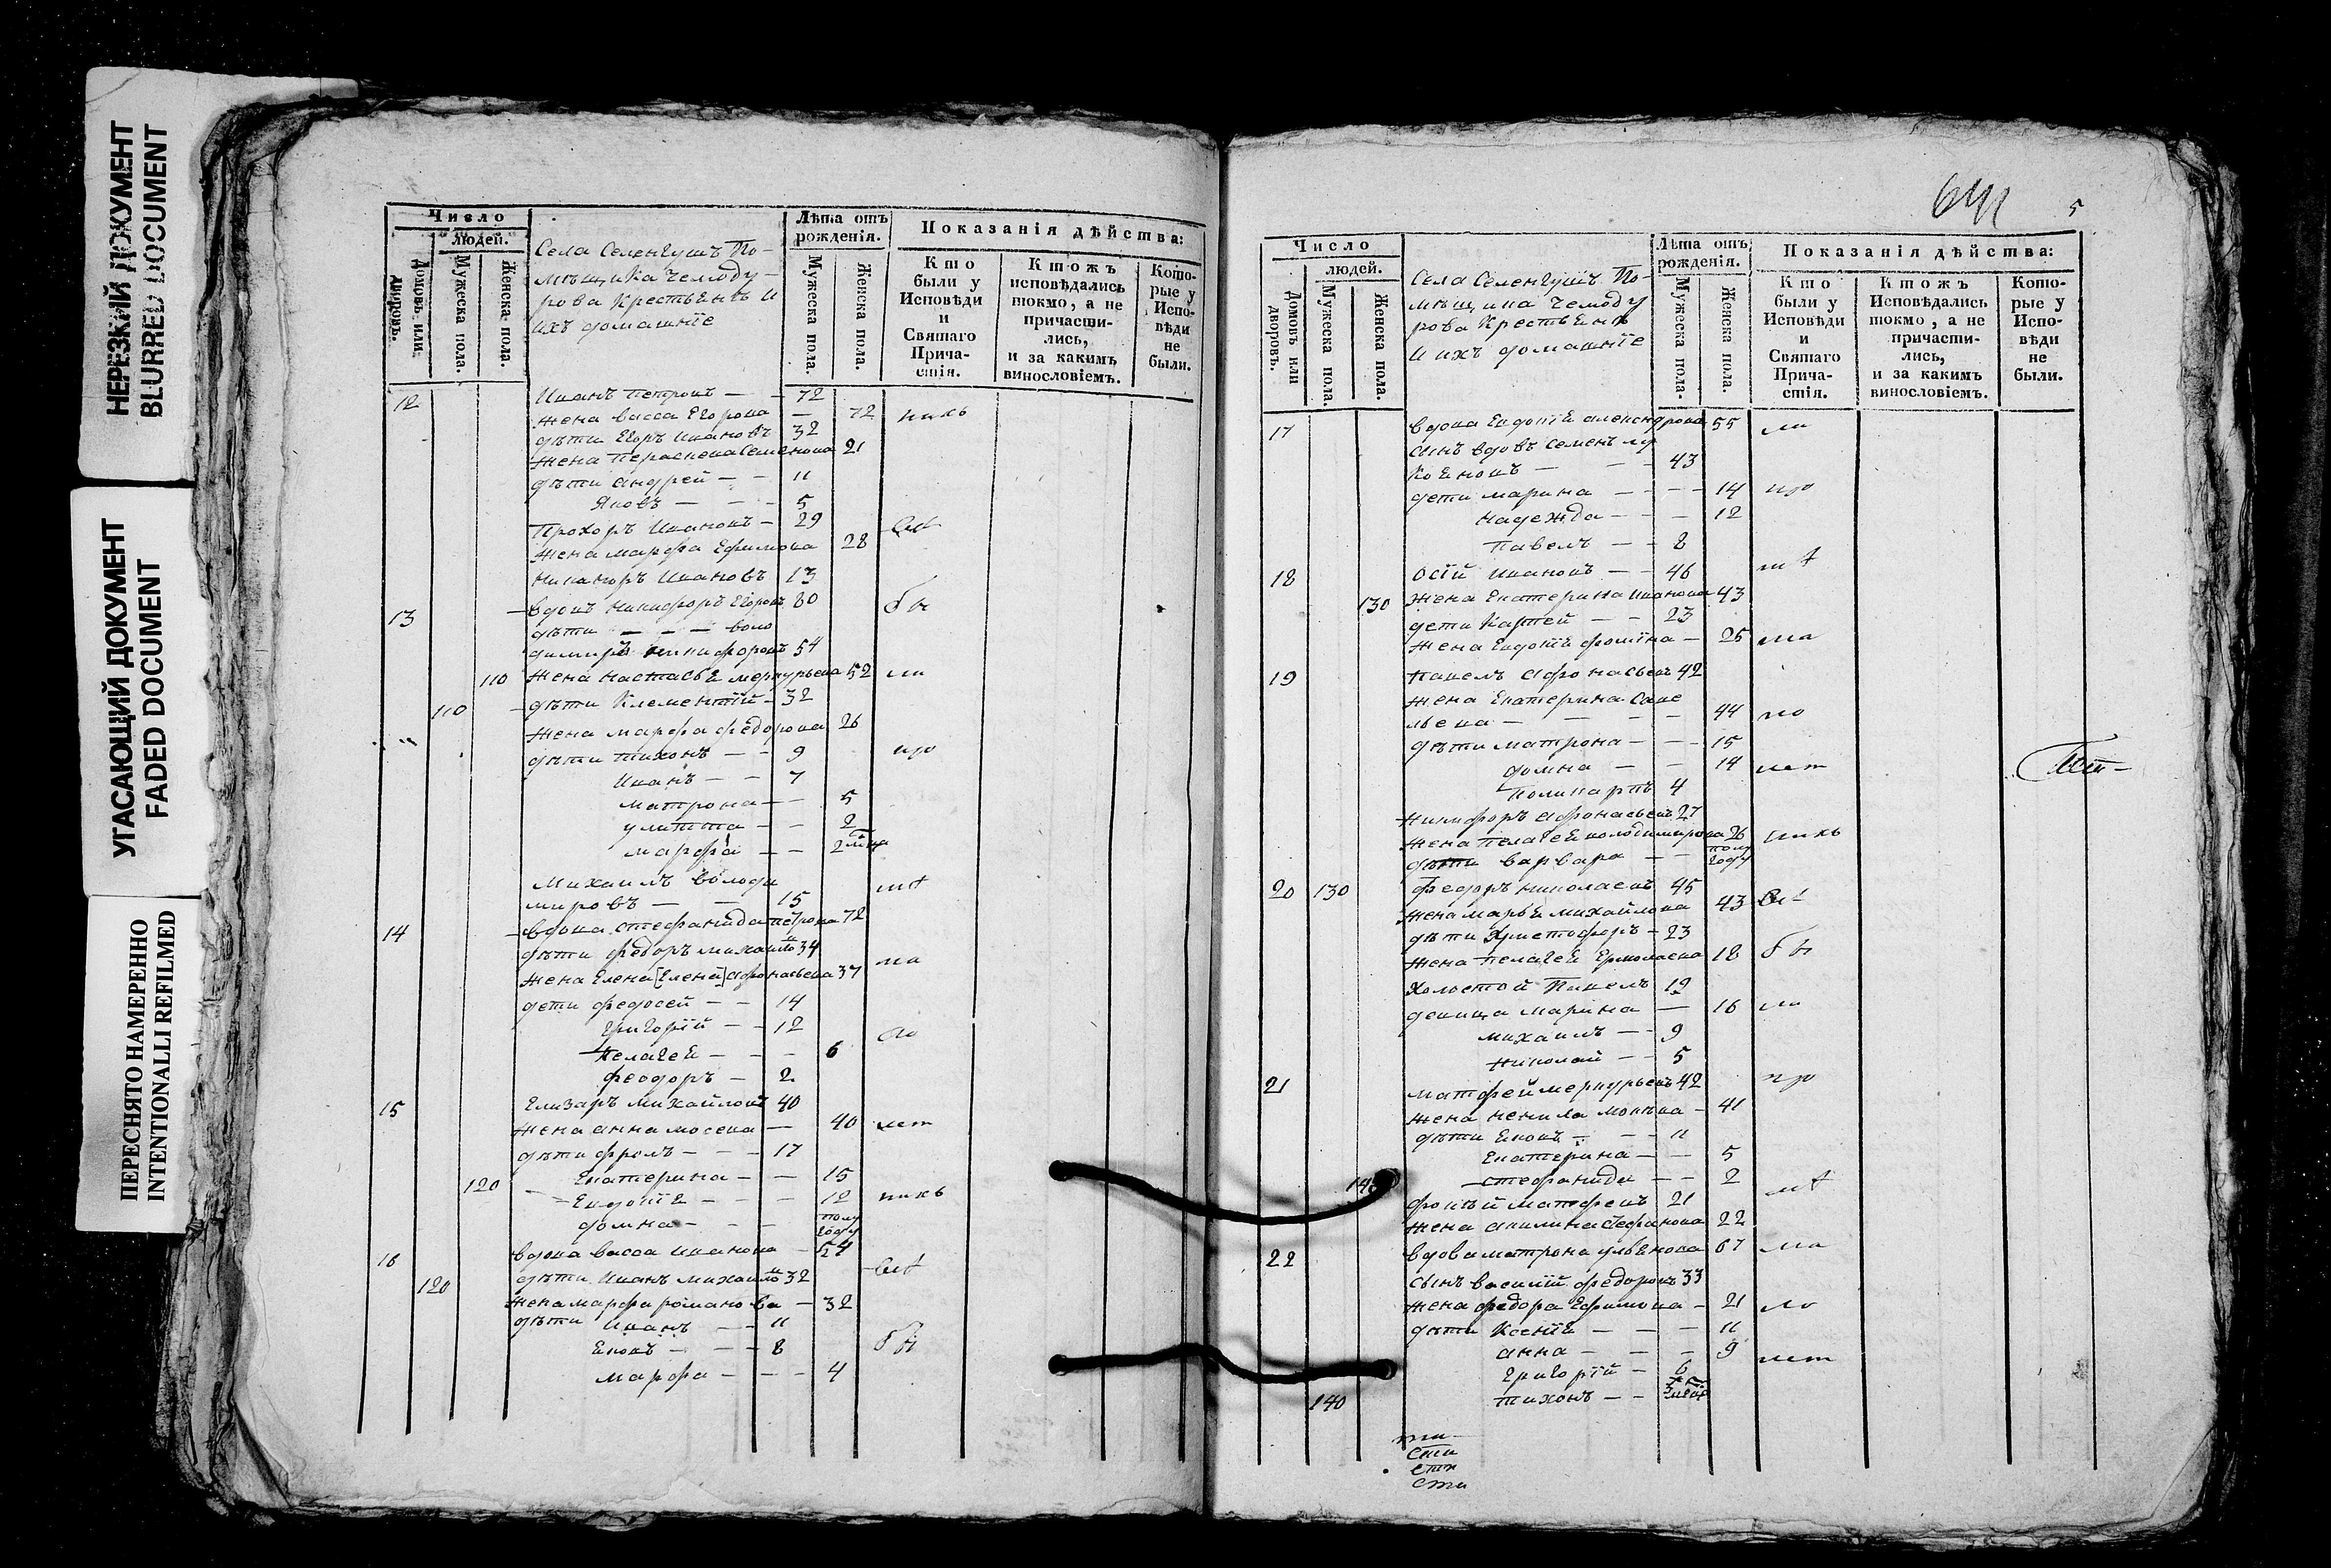 НЕРЕЗКИЙ ДОКУМЕНТ
BLURRED DOCUMENT
УГАСАЮЩИЙ ДОКУМЕНТ
FADED DOCUMENT
ПЕРЕСНЯТО НАМЕРЕННО
INTENTIONALLI REFILMED
Число
людей.
Домовъ или дворовъ.
Мужеска пола.
Женска пола.
Села Семенгушъ По-
мѣщика Чемоду-
рова Крестьенѣ и
ихъ домашніе
Лѣта отъ рожденія.
Мужеска пола.
Женска пола.
Показанія дѣйства:
Кто были у Исповѣди и Святаго Прича-стія.
Ктожъ исповѣдались токмо, а не причасти-лись, и за какимъ винословіемъ.
Кото-рые у Испо-вѣди не были.
12 Иванъ Петровъ — 72
жена васса Егорова — 72
дѣти Егоръ Ивановъ 32
жена Параскева Семенова 21
дѣти андрей — 11
Яковъ — 5
Прохоръ Ивановъ — 29
жена марфа Ефимова 28
никаноръ Ивановъ 13
13 вдовъ никифоръ Егоровъ 80 бы
дѣти — воло
димиръ никифоровъ 54
110 жена настасья меркурьева 52 ли
110 дѣти Климентій — 32
жена марфа федорова 26
дѣти тихонъ — 9
Иванъ — 7
матрона — 5
улитта — 2
марфа — 2 мца
михаилъ володи
мировъ — 15
14 вдова стефанида петрова 72
дѣти федоръ михаило 34
жена Елена [Елена] афонасьева 37
дети федосей — 14
григорій — 12
пелагея — 6
феодоръ — 2
15 Елизаръ михайловъ 40
жена анна мосева — 40 лет
дѣти фролъ — 17
120 Екатерина — 15
Евдокіе — 12
домна — полу году
16 вдова васса иванова — 54
120 дѣти Иванъ михаило 32
жена марфа романова — 32
дѣти Иванъ — 11
Яковъ — 8 бы
марфа — 4
641 5
Число
людей.
Домовъ или дворовъ.
Мужеска пола.
Женска пола.
Села Семенгушъ По-
мѣщика Чемоду
рова Крестьенѣ
и ихъ домашніе
Лѣта отъ рожденія.
Мужеска пола.
Женска пола.
Показанія дѣйства:
Кто были у Исповѣди и Святаго Прича-стія.
Ктожъ Исповѣдались токмо, а не причасти-лись, и за какимъ винословіемъ.
Кото-рые у Испо-вѣди не были.
17 вдова Евдокіе александрова 55 ли
сынъ вдовъ семенъ лу
коеновъ — 43
дети марина — 14
надежда — 12
павелъ — 8
18 осій ивановъ — 46
130 жена Екатерина иванова 43
дети Карпей — 23
жена Евдокіе фомина — 25
19 павелъ афонасьевъ 42
жена Екатерина саве
льева — 44
дѣти матрона — 15
домна — 14 лет
поликарпъ 4
никифоръ афонасьевъ 27
жена пелагея володимирова 26
дѣти варвара — полу году
20 130 федоръ николаевъ 45
жена марья михайлова 43
дѣти христофоръ — 23
жена пелагея Ермолаева 18 бы
холостой павелъ 19
девица марина — 16 ли
михаилъ — 9
николай — 5
21 матфей меркурьевъ 42
жена ненила мокѣева — 41
дѣти Яковъ — 11
Екатерина — 5
стефанида — 2
матфеевъ 21
жена акилина 22
22 вдова матрона ульянова 67
сынъ василій федоровъ 33
жена федора Ефимова — 21
дѣти Ксеніе — 11
анна — 9
григорій — 6 лет
140 тихонъ —
сти
сти